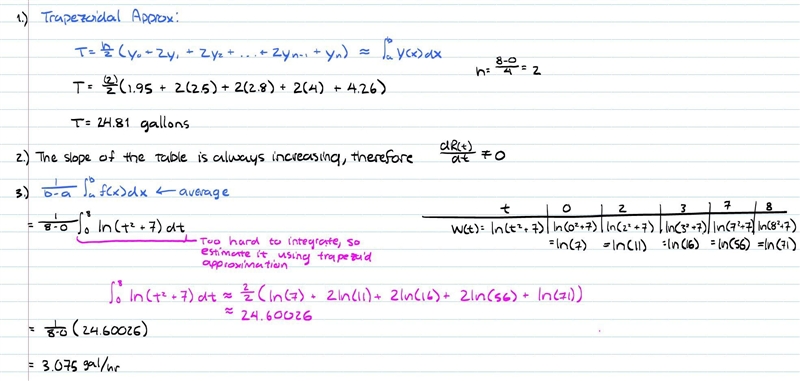 1.) Trapezoidal Approx:
T = h/2 (y₀ + 2y₁ + 2y₂ + ... + 2yₙ₋₁ + yₙ) ≈ ∫ₐᵇ y(x) dx
h = (8-0)/4 = 2
T = (2)/2 (1.95 + 2(2.5) + 2(2.8) + 2(4) + 4.26)
T = 24.81 gallons
2.) The slope of the table is always increasing, therefore dR(t)/dt ≠ 0
3.) 1/(b-a) ∫ₐᵇ f(x) dx ← average
= 1/(8-0) ∫₀⁸ ln(t² + 7) dt
Too hard to integrate, so
estimate it using trapezoid
approximation
t | 0 | 2 | 3 | 7 | 8
W(t) = ln(t² + 7) | ln(0²+7) | ln(2²+7) | ln(3²+7) | ln(7²+7) | ln(8²+7)
= ln(7) | = ln(11) | = ln(16) | = ln(56) | = ln(71)
∫₀⁸ ln(t² + 7) dt ≈ 2/2 (ln(7) + 2ln(11) + 2ln(16) + 2ln(56) + ln(71))
≈ 24.60026
= 1/(8-0) (24.60026)
= 3.075 gal/hr